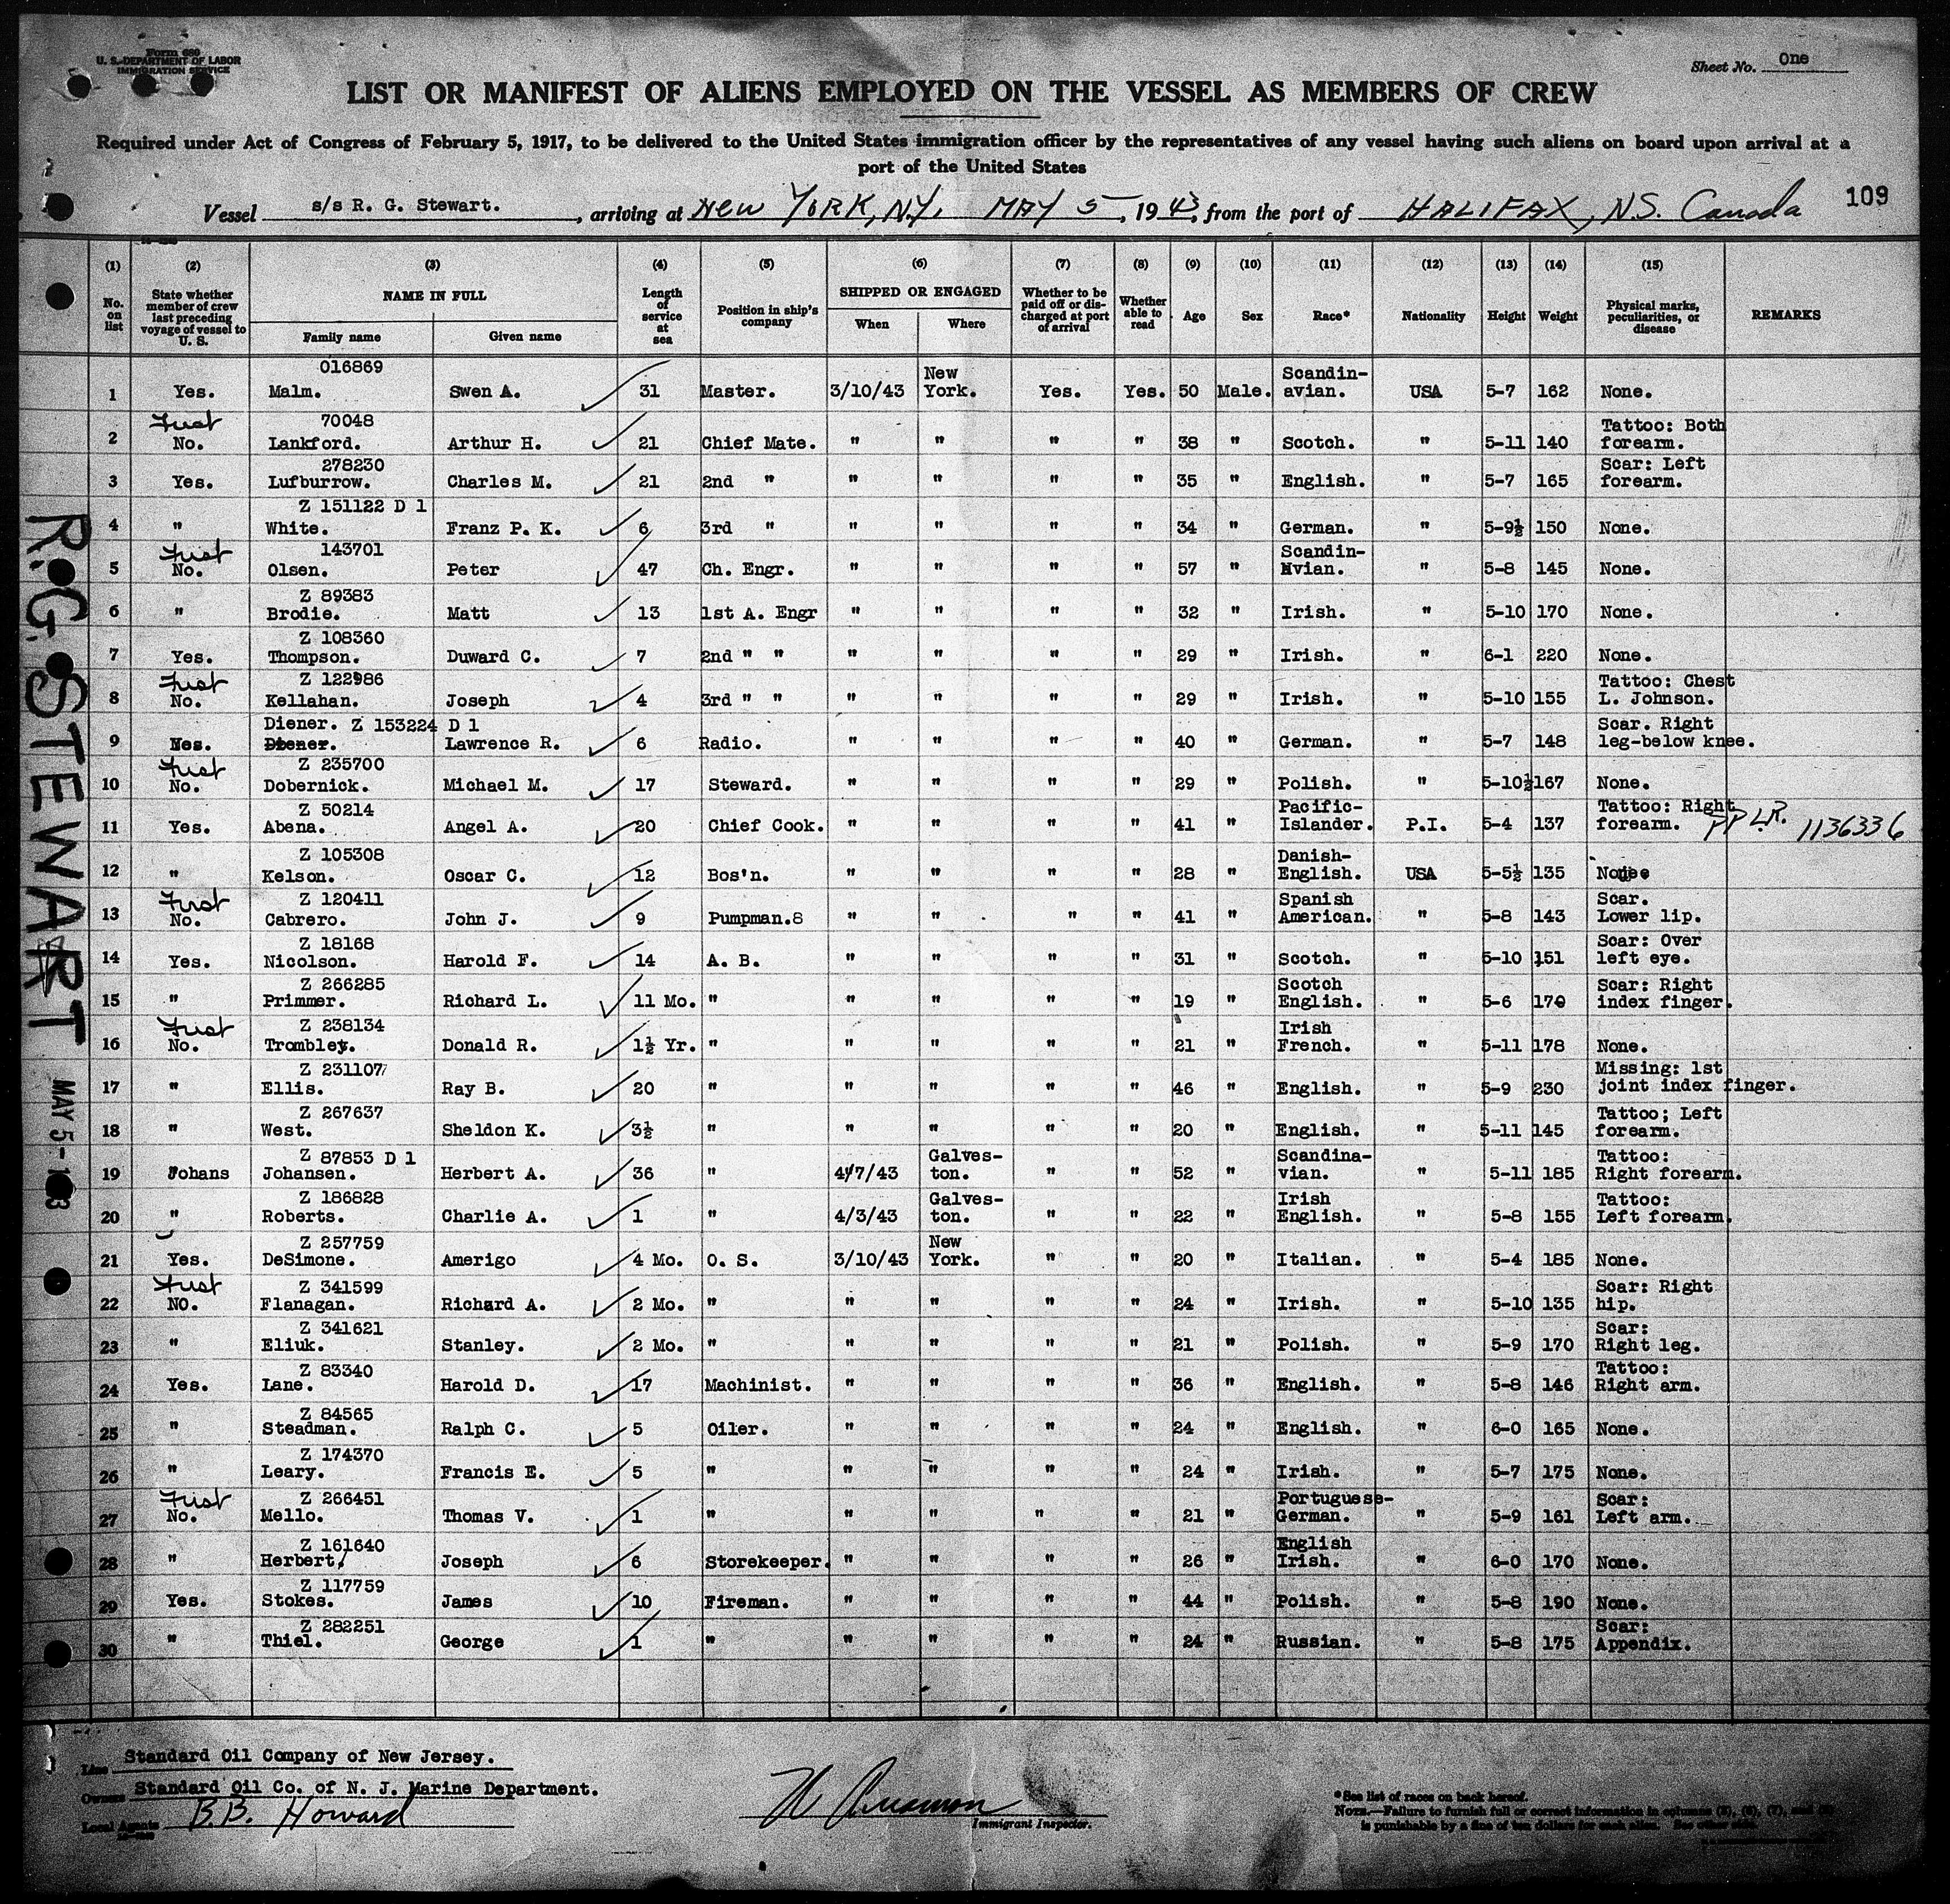 Form 680
U. S. DEPARTMENT OF LABOR
IMMIGRATION SERVICE
Sheet No. One
LIST OR MANIFEST OF ALIENS EMPLOYED ON THE VESSEL AS MEMBERS OF CREW
Required under Act of Congress of February 5, 1917, to be delivered to the United States immigration officer by the representatives of any vessel having such aliens on board upon arrival at a
port of the United States
109
Vessel s/s R. G. Stewart. , arriving at New York, N.Y. MAY 5 , 1943, from the port of HALIFAX, N.S. Canada
(1) (2) (3) (4) (5) (6) (7) (8) (9) (10) (11) (12) (13) (14) (15)
No. on list State whether member of crew last preceding voyage of vessel to U. S. NAME IN FULL Family name Given name Length of service at sea Position in ship's company SHIPPED OR ENGAGED When Where Whether to be paid off or discharged at port of arrival Whether able to read Age Sex Race* Nationality Height Weight Physical marks, peculiarities, or disease REMARKS
016869 New Scandin-
1 Yes. Malm. Swen A. 31 Master. 3/10/43 York. Yes. Yes. 50 Male. avian. USA 5-7 162 None.
First 70048 Tattoo: Both
2 No. Lankford. Arthur H. 21 Chief Mate. " " " " 38 " Scotch. " 5-11 140 forearm.
278230 Scar: Left
3 Yes. Lufburrow. Charles M. 21 2nd " " " " " 35 " English. " 5-7 165 forearm.
Z 151122 D 1
4 " White. Franz P. K. 6 3rd " " " " " 34 " German. " 5-9½ 150 None.
First 143701 Scandin-
5 No. Olsen. Peter 47 Ch. Engr. " " " " 57 " Nvian. " 5-8 145 None.
Z 89383
6 " Brodie. Matt 13 1st A. Engr " " " " 32 " Irish. " 5-10 170 None.
Z 108360
7 Yes. Thompson. Duward C. 7 2nd " " " " " " 29 " Irish. " 6-1 220 None.
First Z 122986 Tattoo: Chest
8 No. Kellahan. Joseph 4 3rd " " " " " " 29 " Irish. " 5-10 155 L. Johnson.
Diener. Z 153224 D 1 Scar. Right
9 Yes. Diener. Lawrence R. 6 Radio. " " " " 40 " German. " 5-7 148 leg-below knee.
First Z 235700
10 No. Dobernick. Michael M. 17 Steward. " " " " 29 " Polish. " 5-10½ 167 None.
Z 50214 Pacific- Tattoo: Right
11 Yes. Abena. Angel A. 20 Chief Cook. " " " " 41 " Islander. P.I. 5-4 137 forearm. PP L.R. 1136336
Z 105308 Danish-
12 " Kelson. Oscar C. 12 Bos'n. " " " " 28 " English. USA 5-5½ 135 None
First Z 120411 Spanish Scar.
13 No. Cabrero. John J. 9 Pumpman.8 " " " " 41 " American. " 5-8 143 Lower lip.
Z 18168 Scar: Over
14 Yes. Nicolson. Harold F. 14 A. B. " " " " 31 " Scotch. " 5-10 151 left eye.
Z 266285 Scotch Scar: Right
15 " Primmer. Richard L. 11 Mo. " " " " " 19 " English. " 5-6 170 index finger.
First Z 238134 Irish
16 No. Trombley. Donald R. 1½ Yr. " " " " " 21 " French. " 5-11 178 None.
Z 231107 Missing: 1st
17 " Ellis. Ray B. 20 " " " " " 46 " English. " 5-9 230 joint index finger.
Z 267637 Tattoo; Left
18 " West. Sheldon K. 3½ " " " " " 20 " English. " 5-11 145 forearm.
Z 87853 D 1 Galves- Scandina- Tattoo:
19 Johans Johansen. Herbert A. 36 " 4/7/43 ton. " " 52 " vian. " 5-11 185 Right forearm.
Z 186828 Galves- Irish Tattoo:
20 " Roberts. Charlie A. 1 " 4/3/43 ton. " " 22 " English. " 5-8 155 Left forearm.
Z 257759 New
21 Yes. DeSimone. Amerigo 4 Mo. O. S. 3/10/43 York. " " 20 " Italian. " 5-4 185 None.
First Z 341599 Scar: Right
22 NO. Flanagan. Richard A. 2 Mo. " " " " " 24 " Irish. " 5-10 135 hip.
Z 341621 Scar:
23 " Eliuk. Stanley. 2 Mo. " " " " " 21 " Polish. " 5-9 170 Right leg.
Z 83340 Tattoo:
24 Yes. Lane. Harold D. 17 Machinist. " " " " 36 " English. " 5-8 146 Right arm.
Z 84565
25 " Steadman. Ralph C. 5 Oiler. " " " " 24 " English. " 6-0 165 None.
Z 174370
26 " Leary. Francis E. 5 " " " " " 24 " Irish. " 5-7 175 None.
First Z 266451 Portuguese- Scar:
27 No. Mello. Thomas V. 1 " " " " " 21 " German. " 5-9 161 Left arm.
Z 161640 English
28 " Herbert, Joseph 6 Storekeeper. " " " " 26 " Irish. " 6-0 170 None.
Z 117759
29 Yes. Stokes. James 10 Fireman. " " " " 44 " Polish. " 5-8 190 None.
Z 282251 Scar:
30 " Thiel. George 1 " " " " " 24 " Russian. " 5-8 175 Appendix.
R.G. STEWART MAY 5-
Line Standard Oil Company of New Jersey.
Owners Standard Oil Co. of N. J. Marine Department.
Local Agents B.B. Howard
Immigrant Inspector.
*See list of races on back hereof.
NOTE.—Failure to furnish full or correct information in columns (3), (6), (7), and
is punishable by a fine of ten dollars for each alien. See other side.